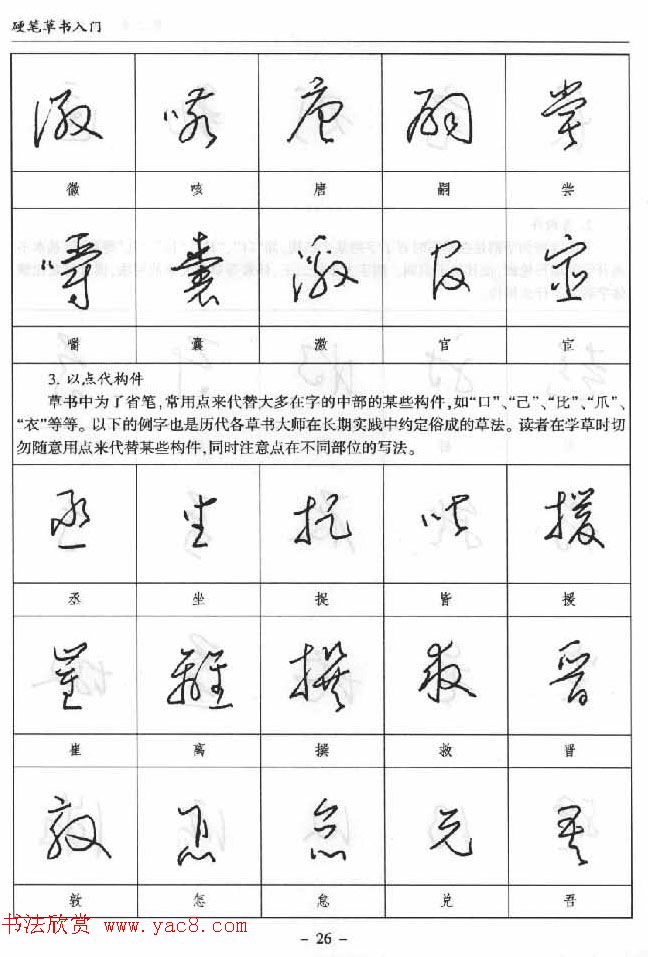 硬笔草书入门
徽 咳 唐 嗣 尝
嚼 囊 激 官 宦
3. 以点代构件
草书中为了省笔,常用点来代替大多在字的中部的某些构件,如“口”、“己”、“比”、“爪”、
“衣”等等。以下的例字也是历代各草书大师在长期实践中约定俗成的草法。读者在学草时切
勿随意用点来代替某些构件,同时注意点在不同部位的写法。
丞 坐 捉 皆 援
崔 离 撰 救 晋
敦 怎 怠 兑 吾
书法欣赏 www.yac8.com
- 26 -